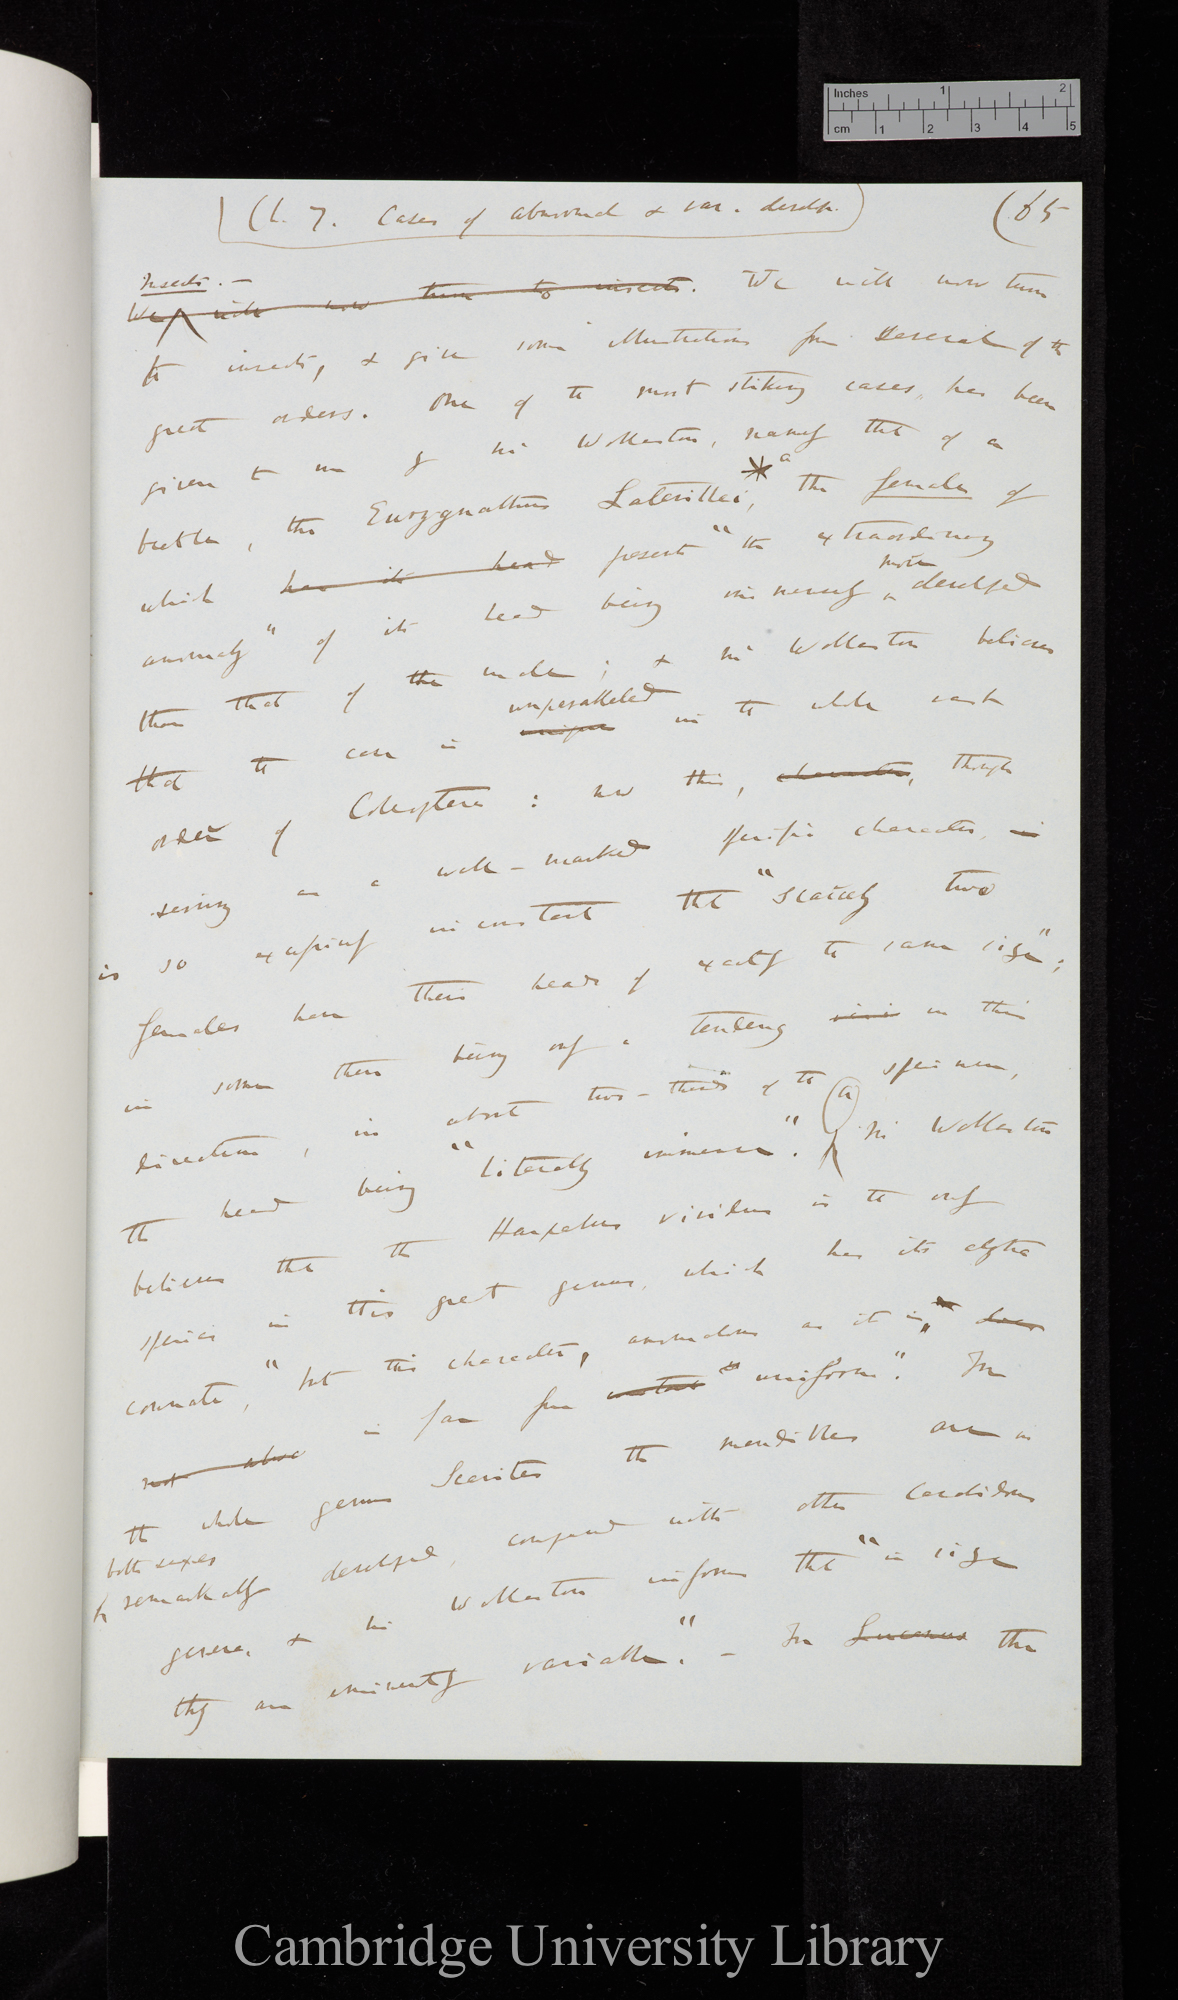 Inches 1 2
cm 1 2 3 4 5
Ch. 7. Cases of abnormal & var. develp.
(65
Insects. —
We will now turn to insects. We will now turn
to insects, & give some illustrations from several of the
great orders. One of the most striking cases, has been
given to me by Mr Wollaston, namely that of a
beetle, the Eurygnathus Latreillei, the females of
which has its head present "the extraordinary
anomaly" of its head being immensely more developed
than that of the male; & Mr Wollaston believes
that the case is unparalleled in the whole vast
order of Coleoptera: now this, character, though
serving as a well-marked specific character, is
is so excessively inconstant that "scarcely two
females have their heads of exactly the same size";
in some there being only a tendency in this
direction, in about two-thirds of the specimens,
the head being "literally immense". Mr Wollaston
believes that the Harpalus vividus is the only
species in this great genus, which has its elytra
connate, "but this character, anomalous as it is," does
not also is far from constant "uniform". In
the whole genus Scarites the mandibles are in
both sexes
so remarkably developed, compared with other Carabidous
genera, & Mr Wollaston informs that "in size
they are eminently variable". — In Lucanus the
Cambridge University Library